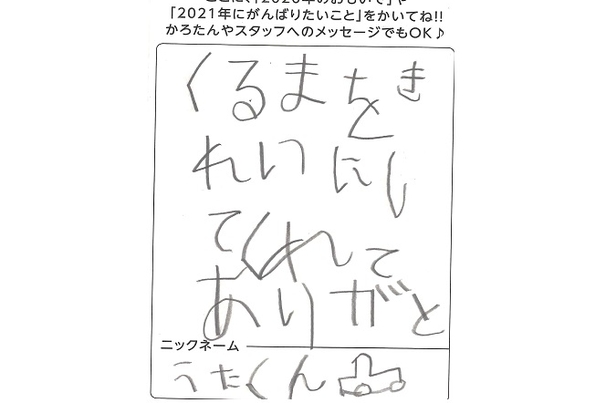 「2021年にがんばりたいこと」をかいてね!!
かろたんやスタッフへのメッセージでもOK♪
くるまをき
れいにし
てくれて
ありがと
ニックネーム
うたくん